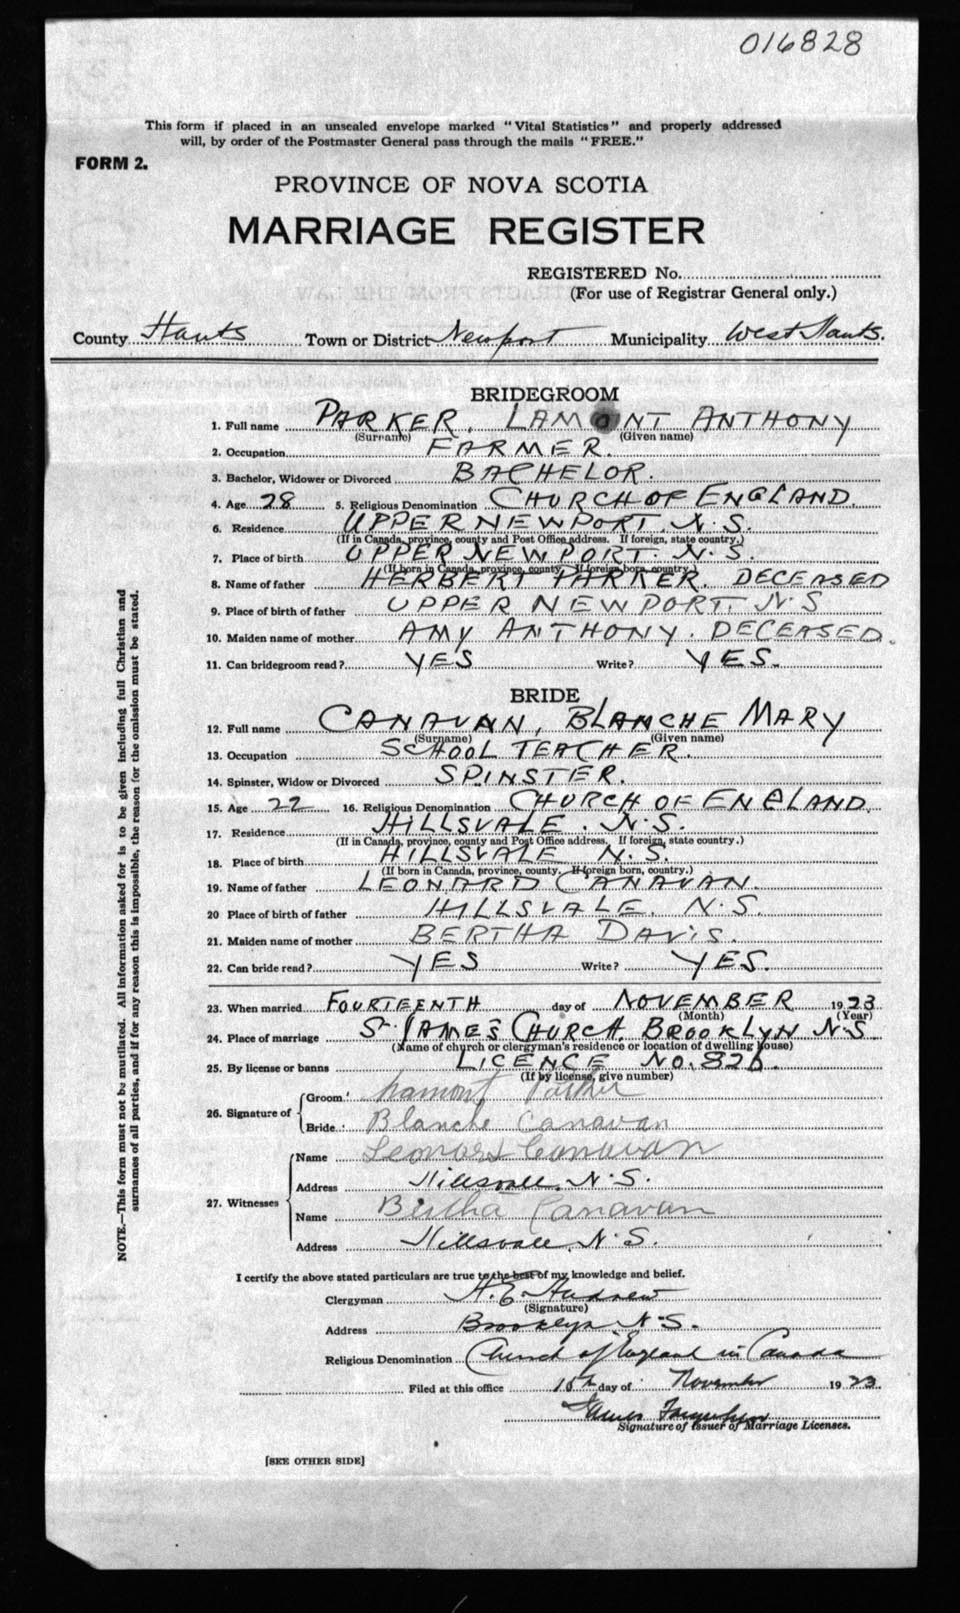 016828
This form if placed in an unsealed envelope marked "Vital Statistics" and properly addressed
will, by order of the Postmaster General pass through the mails "FREE."
FORM 2.
PROVINCE OF NOVA SCOTIA
MARRIAGE REGISTER
REGISTERED No.
(For use of Registrar General only.)
County Hants Town or District Newport Municipality West Hants.
BRIDEGROOM
1. Full name PARKER, LAMONT ANTHONY
(Surname) (Given name)
2. Occupation FARMER.
3. Bachelor, Widower or Divorced BACHELOR.
4. Age 28 5. Religious Denomination CHURCH OF ENGLAND.
6. Residence UPPER NEWPORT. N.S.
(If in Canada, province, county and Post Office address. If foreign, state country.)
7. Place of birth UPPER NEWPORT. N.S.
(If born in Canada, province, county. If foreign born, country.)
8. Name of father HERBERT PARKER. DECEASED
9. Place of birth of father UPPER NEWPORT. N.S
10. Maiden name of mother AMY ANTHONY. DECEASED.
11. Can bridegroom read? YES Write? YES.
BRIDE
12. Full name CANAVAN, BLANCHE MARY
(Surname) (Given name)
13. Occupation SCHOOL TEACHER.
14. Spinster, Widow or Divorced SPINSTER.
15. Age 22 16. Religious Denomination CHURCH OF ENGLAND
17. Residence HILLSVALE. N.S.
(If in Canada, province, county and Post Office address. If foreign, state country.)
18. Place of birth HILLSVALE N.S.
(If born in Canada, province, county. If foreign born, country.)
19. Name of father LEONARD CANAVAN.
20 Place of birth of father HILLSVALE. N.S.
21. Maiden name of mother BERTHA DAVIS.
22. Can bride read? YES Write? YES.
23. When married FOURTEENTH day of NOVEMBER 1923
(Month) (Year)
24. Place of marriage ST JAMES CHURCH, BROOKLYN N.S.
(Name of church or clergyman's residence or location of dwelling house)
25. By license or banns LICENCE NO. 826.
(If by license, give number)
26. Signature of
Groom Lamont Parker
Bride Blanche Canavan
27. Witnesses
Name Leonard Canavan
Address Hillsvale N.S.
Name Bertha Canavan
Address Hillsvale, N.S.
I certify the above stated particulars are true to the best of my knowledge and belief.
Clergyman H. E. Andrew
(Signature)
Address Brooklyn N.S.
Religious Denomination Church of England in Canada
Filed at this office 15th day of November 1923.
James
Signature of Issuer of Marriage Licenses.
[SEE OTHER SIDE]
NOTE.—This form must not be mutilated. All information asked for is to be given including full Christian and
surnames of all parties, and if for any reason this is impossible, the reason for the omission must be stated.